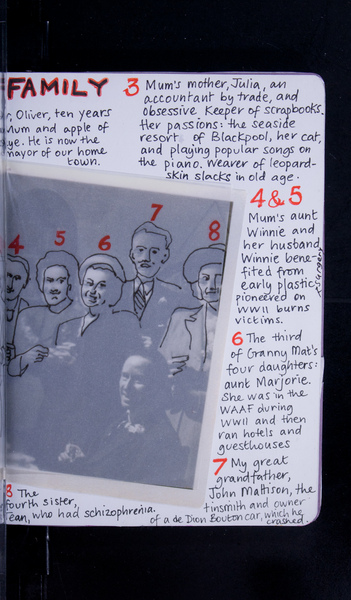 FAMILY
r, Oliver, ten years
Mum and apple of
eye. He is now the
mayor of our home
town.
3 Mum's mother, Julia, an
accountant by trade, and
obsessive Keeper of scrapbooks.
Her passions: the seaside
resort of Blackpool, her cat,
and playing popular songs on
the piano. Wearer of leopard-
skin slacks in old age.
4 & 5
Mum's aunt
Winnie and
her husband.
Winnie bene-
fited from
early plastic
surgery
pioneered on
WWII burns
victims.
4
5
6
7
8
6 The third
of Granny Mat's
four daughters:
aunt Marjorie.
She was in the
WAAF during
WWII and then
ran hotels and
guesthouses
7 My great
grandfather,
John Mattison, the
tinsmith and owner
of a de Dion Bouton car, which he
crashed.
8 The
fourth sister,
ean, who had schizophrenia.